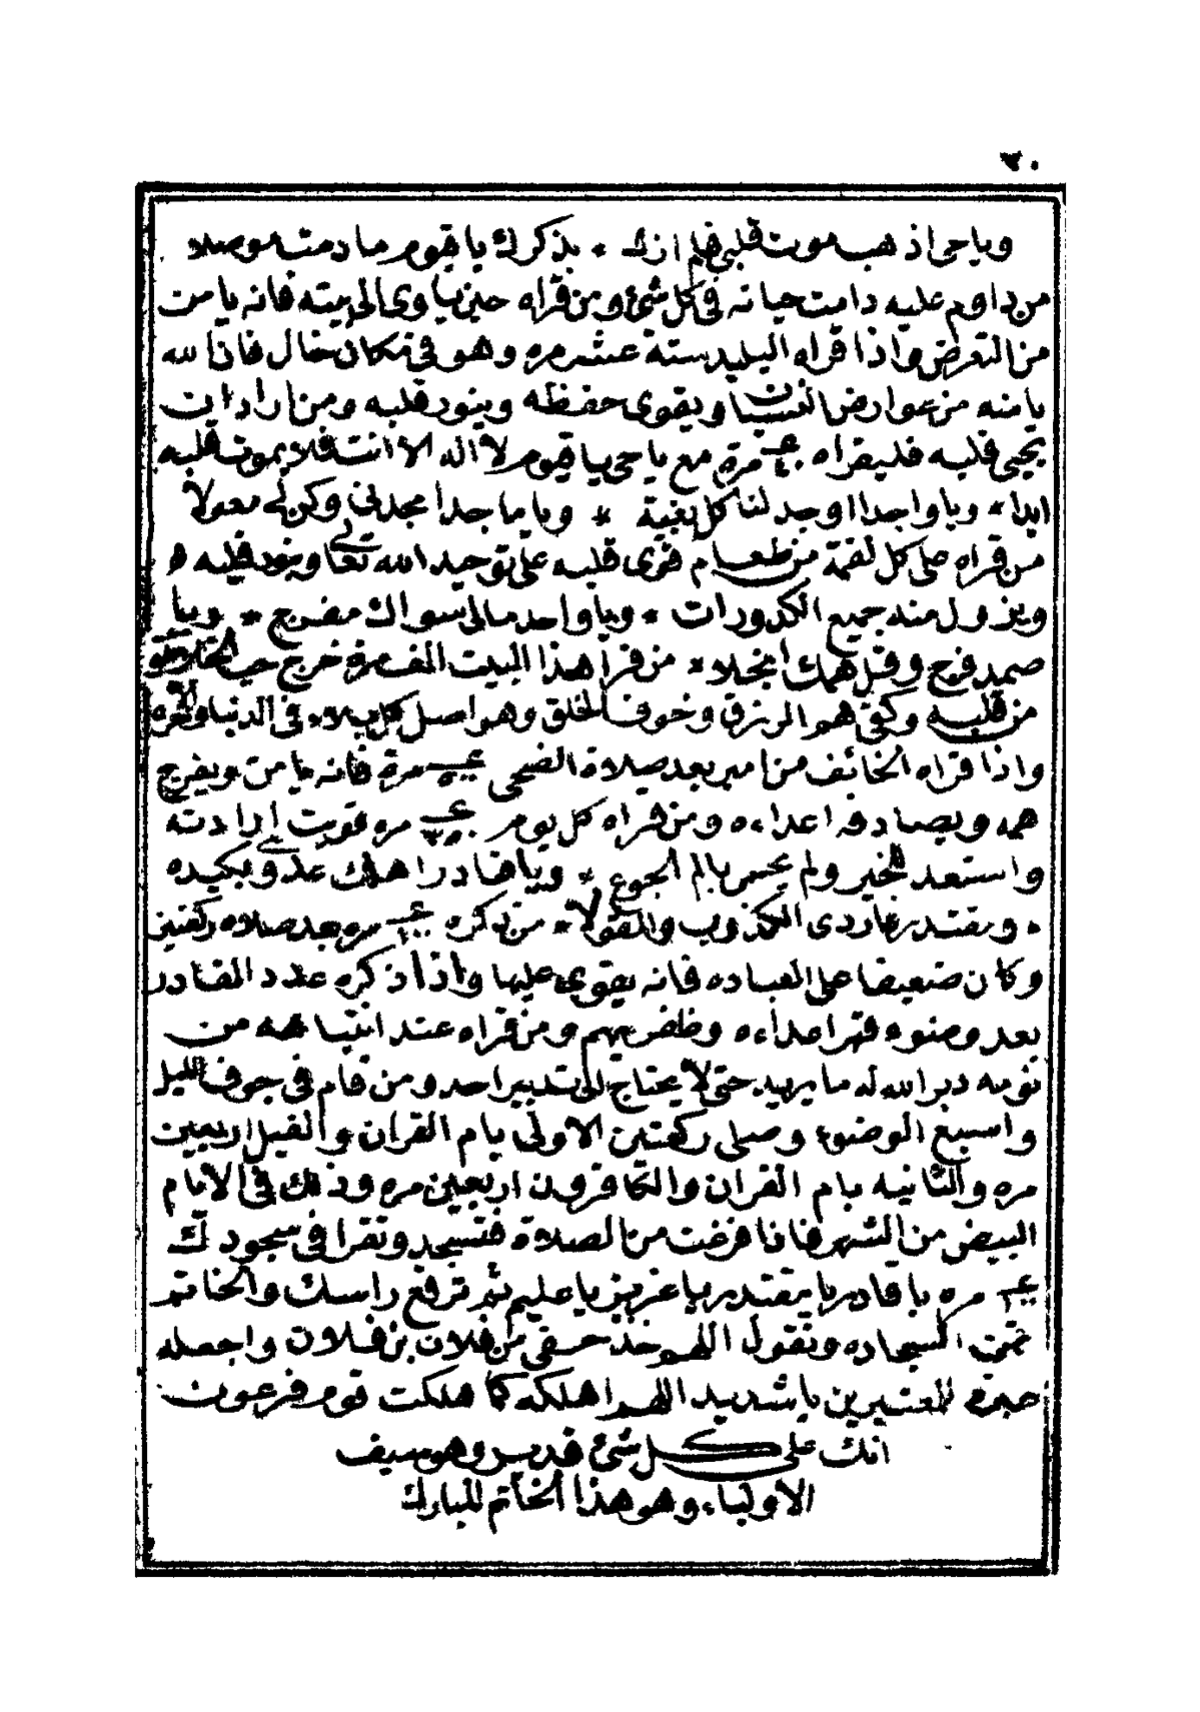 ٣٠
ويا حي اذهب موت قلبي فلم ازل * بذكرك يا قيوم ما دمت موصلا
من داوم عليه دامت حياته في كل شئ ومن قراه حين ياوى الى بيته فانه يامن
من التعرض واذا قراه البليد ستة عشر مره وهو في مكان خال فان الله
يامنه من عوارض النسيان ويقوى حفظه وينور قلبه ومن اراد ان
يحيى قلبه فليقراه مرة مع يا حي يا قيوم لا اله الا انت فلا يموت قلبه
ابدا * ويا واجدا اوجد لنا كل بغية * ويا ماجدا مجدني وكن لي معولا
من قراه على كل لقمة من طعام قوى قلبه على توحيد الله تعالى وينور قلبه
ويزول منه جميع الكدورات * ويا واحد مالي سواك مفرج * ويا
صمد فرج وقل همك انجلا * من قرا هذا البيت الف مرة خرج حب
من قلبه وكفى هم الرزق وخوف الخلق وهو اصل كل بلاء في الدنيا والاخره
واذا قراه الخائف من امير بعد صلاة الضحى مرة فانه يامن ويفرج
همه ويصادف اعداءه ومن قراه كل يوم مره قويت ارادته
واستعد للخير ولم يحس بالم الجوع * ويا قادرا اهلك عدوى بكيده
* ومقتدر فاردى الكذوب والمقولا * من ذكره مره بعد صلاه ركعتين
وكان ضعيفا على العباده فانه يقوى عليها واذا ذكره عدد القادر
بعد وضوء قهر اعداءه وظفر بهم ومن قراه عند انتباهه من
نومه دبر الله له ما يريد حتى لا يحتاج الى تدبير احد ومن قام في جوف الليل
واسبغ الوضوء وصلى ركعتين الاولى بام القران والفيل اربعين
مره والثانيه بام القران والكافرون اربعين مره وذلك في الايام
البيض من الشهر فاذا فرغت من الصلاة فتسجد وتقرا في سجودك
مره يا قادر يا مقتدر يا عزيز يا عليم ثم ترفع راسك والخاتم
تحت السجاده وتقول اللهم خذ حقي من فلان بن فلان واجعله
عبرة للمعتبرين يا شديد اللهم اهلكه كما هلكت قوم فرعون
انك على كل شئ قدير وهو سيف
الاولياء وهو هذا الخاتم المبارك